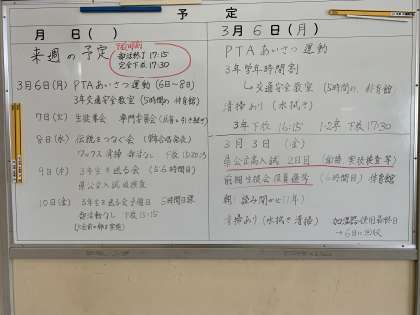 予定
月 日( )
来週の予定
部活終了 17:15
完全下校 17:30
3月6日(月) PTAあいさつ運動(6日~8日)
3年交通安全教室(5時間め 体育館)
7日(火) 生徒集会 専門委員会
8日(水) 伝統をつなぐ会
ワックス清掃 部活なし 下校
9日(木) 3年生を送る会(5.6時間目)
県公立高入試
10日(金) 3年生を送る会予備日 5時間日課
部活動なし 下校 15:15
3月6日(月)
PTAあいさつ運動
3年学年時間割
↳交通安全教室(5時間め、体育館)
清掃あり(水拭き)
3年下校 16:15 1・2年 下校 17:30
3月3日(金)
県公立高入試 2日目(面接 実技検査等)
前期生徒会役員選挙(6時間目)体育館
朝:読み聞かせ(1年)
清掃あり(水拭き清掃) 加湿器使用最終日
→6日に回収